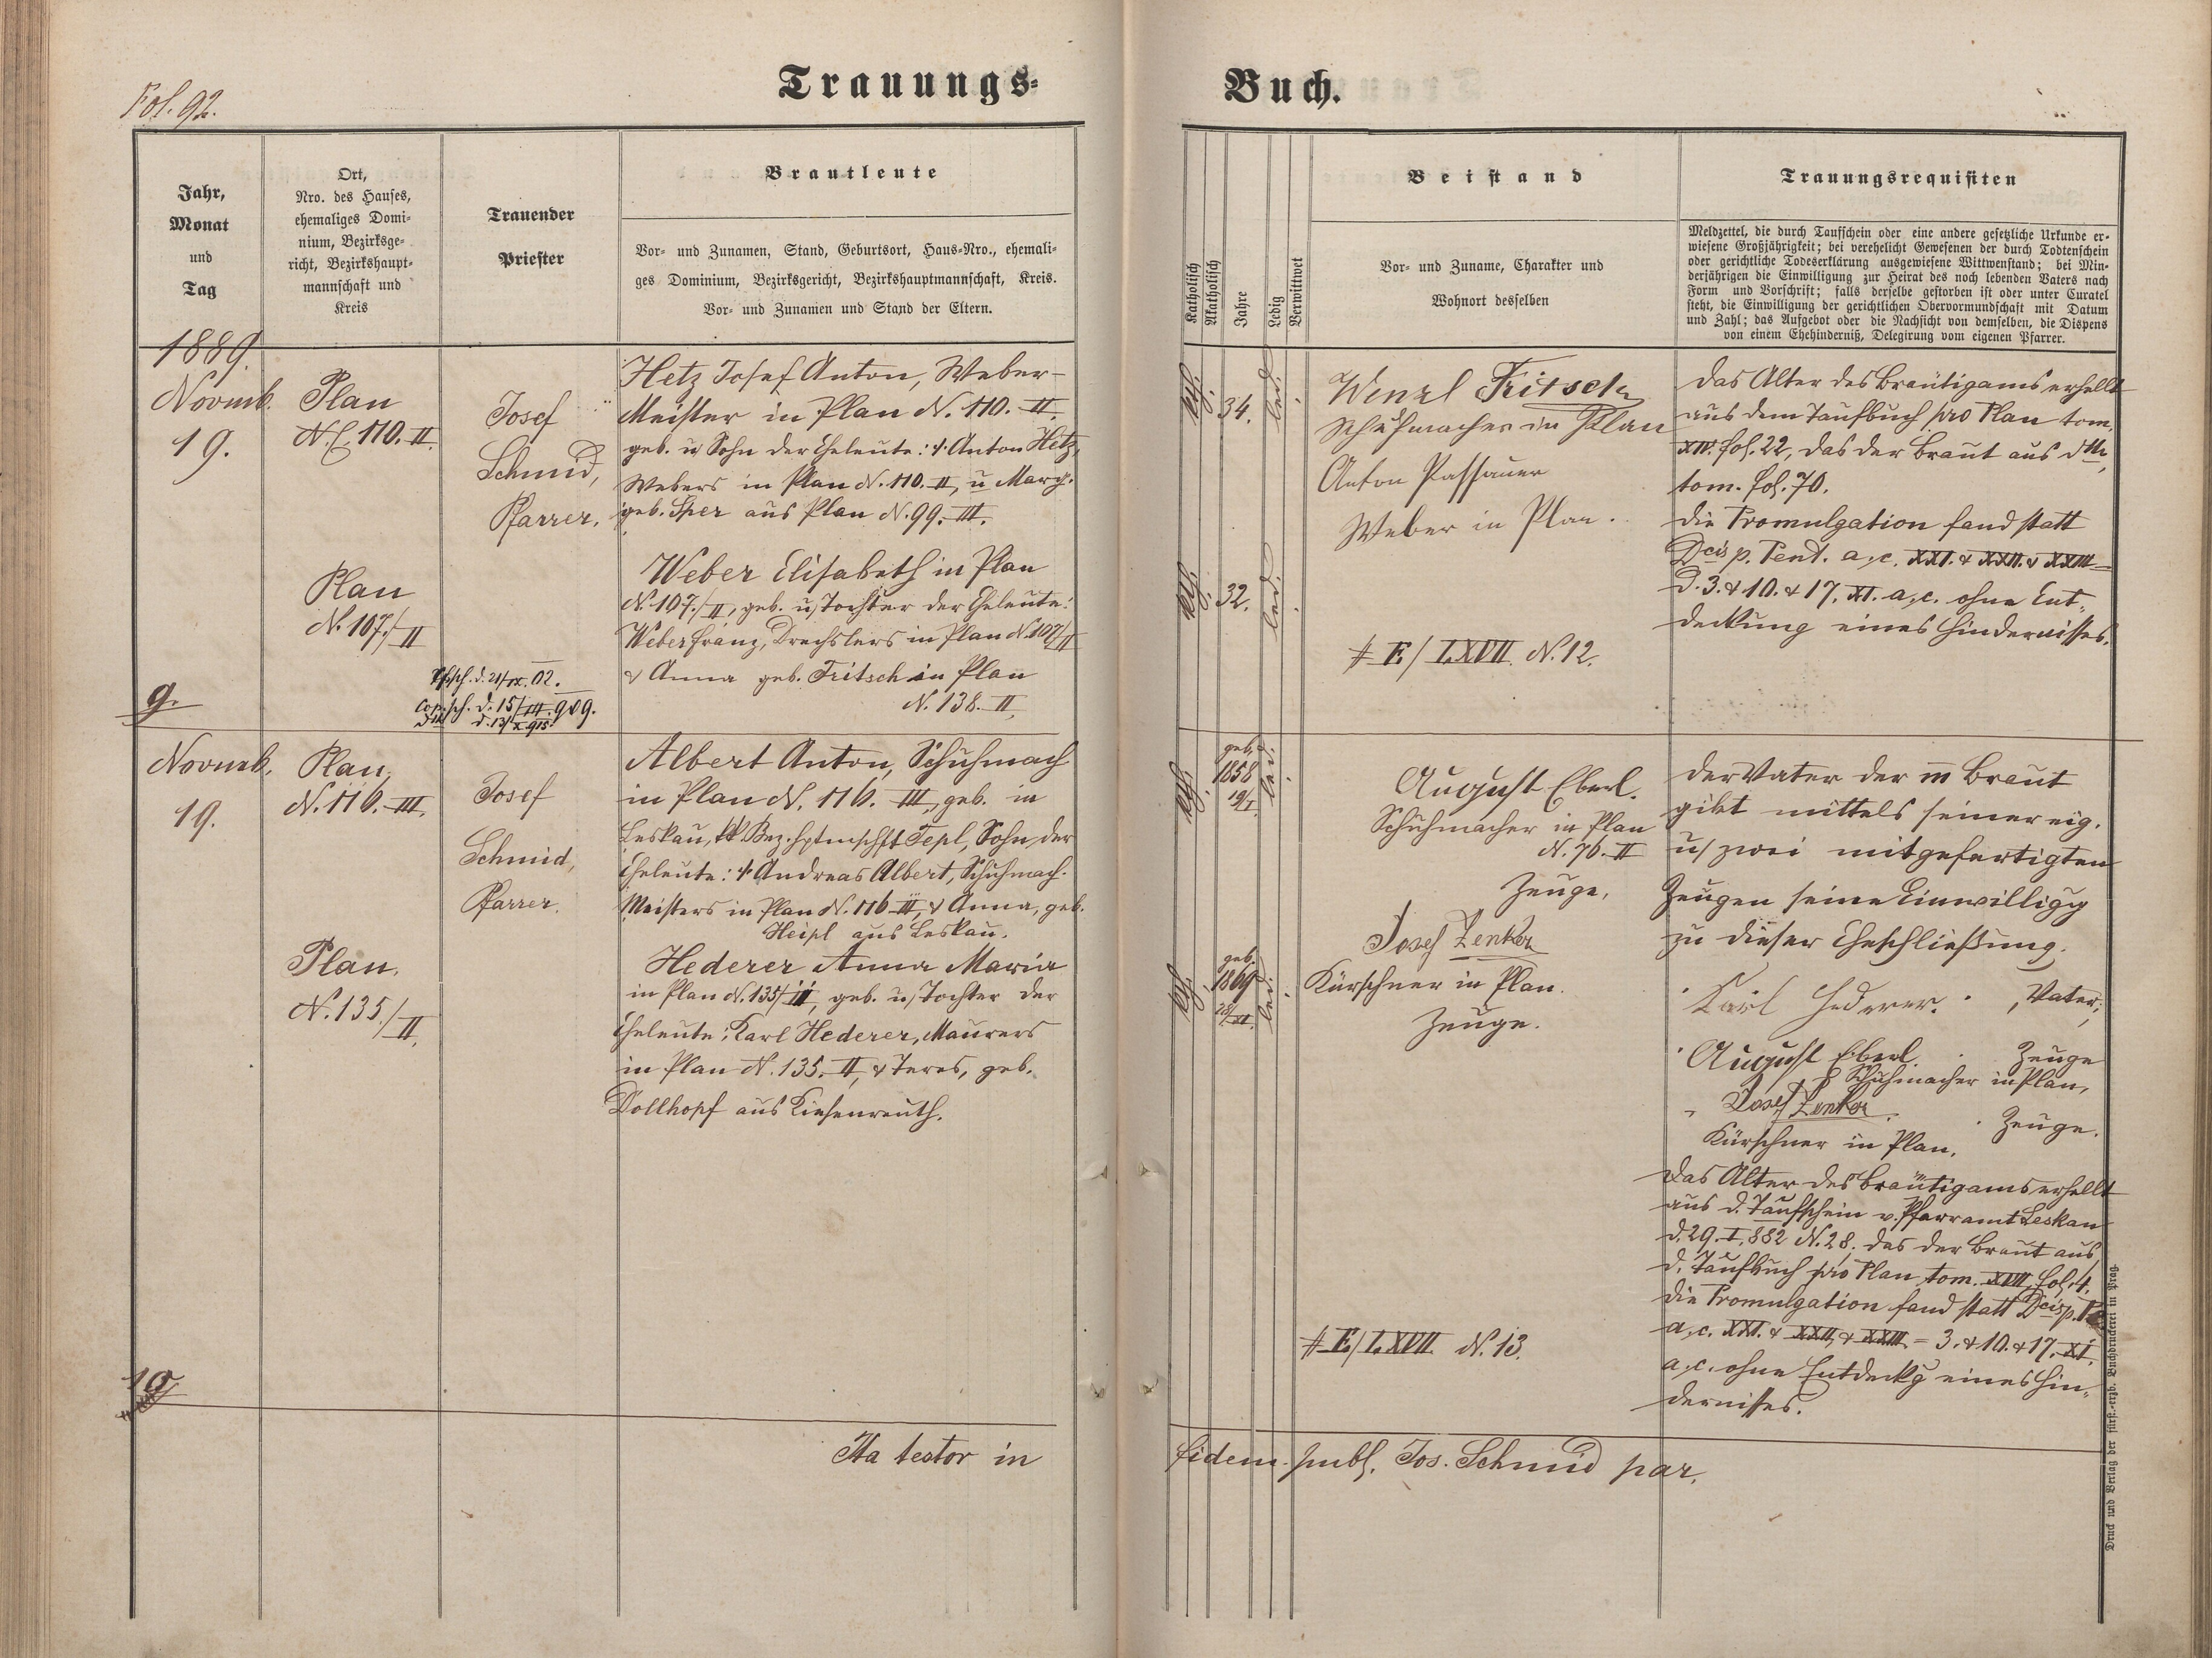 Fol. 92.
Trauungs=
Jahr,
Monat
und
Tag
Ort,
Nro. des Hauses,
ehemaliges Domi-
nium, Bezirksge-
richt, Bezirkshaupt-
mannschaft und
Kreis
Trauender
Priester
Brautleute
Vor- und Zunamen, Stand, Geburtsort, Haus-Nro., ehemali-
ges Dominium, Bezirksgericht, Bezirkshauptmannschaft, Kreis.
Vor- und Zunamen und Stand der Eltern.
1889.
Novmb.
19.
Plan
N.C. 110. II.
Josef
Schmid,
Pfarrer.
Hetz Josef Anton, Weber-
Meister in Plan N. 110. II.
geb. u Sohn der Eheleute: Anton Hetz,
Webers in Plan N. 110. II, u Marg.
geb. Sper aus Plan N. 99. III.
Plan
N. 107./II
Weber Elisabeth in Plan
N. 107./II, geb. u Tochter der Eheleute:
Weber Franz, Drechslers in Plan N. 107/II
& Anna geb. Fritsch in Plan
N. 138. II.
d. 21/IX. 02.
Cop. sch. d. 15/III. 909.
d. 13/X 915.
9.
Novmb.
19.
Plan,
N. 116. III.
Josef
Schmid,
Pfarrer.
Albert Anton, Schuhmach
in Plan N. 116. III, geb. in
Leskau, kk Bez. hptmschft Tepl, Sohn der
Eheleute: Andreas Albert, Schuhmach-
Meisters in Plan N. 116 III, & Anna, geb.
Heipl aus Leskau.
Plan.
N. 135./II.
Hederer Anna Maria
in Plan N. 135/II, geb. u Tochter der
Eheleute: Karl Hederer, Maurers
in Plan N. 135. II, & Teres, geb.
Dollhopf aus Kiesenreuth.
10
Ita testor in
Buch.
Katholisch
Akatholisch
Jahre
Ledig
Verwittwet
Beistand
Vor- und Zuname, Charakter und
Wohnort desselben
Trauungsrequisiten
Meldzettel, die durch Taufschein oder eine andere gesetzliche Urkunde er-
wiesene Großjährigkeit; bei verehelicht Gewesenen der durch Todtenschein
oder gerichtliche Todeserklärung ausgewiesene Wittwenstand; bei Min-
derjährigen die Einwilligung zur Heirat des noch lebenden Vaters nach
Form und Vorschrift; falls derselbe gestorben ist oder unter Curatel
steht, die Einwilligung der gerichtlichen Obervormundschaft mit Datum
und Zahl; das Aufgebot oder die Nachsicht von demselben, die Dispens
von einem Ehehinderniß, Delegirung vom eigenen Pfarrer.
kth.
34.
led.
Wenzl Fritsch
Schuhmacher in Plan
Anton Passauer
Weber in Plan.
kth.
32.
led.
# E/ LXVII. N. 12.
Das Alter des Bräutigams erhellt
aus dem Taufbuch pro Plan tom.
XIV. fol. 22, das der Braut aus dtto
tom. fol. 70.
Die Promulgation fand statt
Dcis p. Pent. a. c. XXI. & XXII. & XXIII =
d. 3. & 10. & 17. XI. a. c. ohne Ent-
deckung eines Hindernisses.
kth.
geb.
1858
19/I.
led.
August Eberl.
Schuhmacher in Plan
N. 76. II
Zeuge,
Josef Zenker
Kürschner in Plan.
Zeuge.
kth.
geb.
1869
28/XI.
led.
# E/ LXVII. N. 13.
Der Vater der m Braut
gibt mittels seiner eig.
u/ zwei mitgefertigten
Zeugen seine Einwilligg
zu dieser Eheschließung.
Karl Hederer. Vater;
August Eberl Zeuge
Schuhmacher in Plan,
Josef Zenker
Zeuge.
Kürschner in Plan.
Das Alter des Bräutigams erhellt
aus d. Taufschein v. Pfarramt Leskau
d. 29. I. 882 N. 28. das der Braut aus
d. Taufbuch pro Plan tom. XVII. fol. 4.
Die Promulgation fand statt Dcis p. P
a. c. XXI. & XXII. & XXIII. = 3. & 10. & 17. XI.
a. c. ohne Entdeckg eines Hin-
dernisses.
fidem publ. Jos. Schmid par.
Druck und Verlag der fürst.-erzb. Buchdruckerei in Prag.